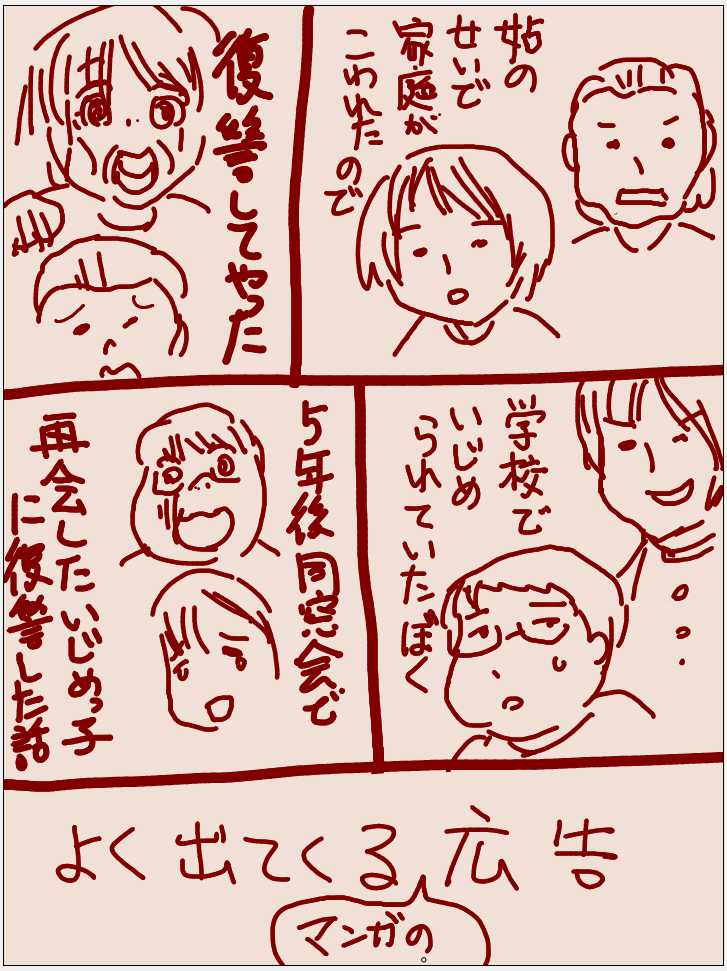 姑の
せいで
家庭が
こわれた
ので
復讐してやった
学校で
いじめ
られていたぼく
5年後同窓会で
再会したいじめっ子
に復讐した話
よく出てくる広告
マンガの